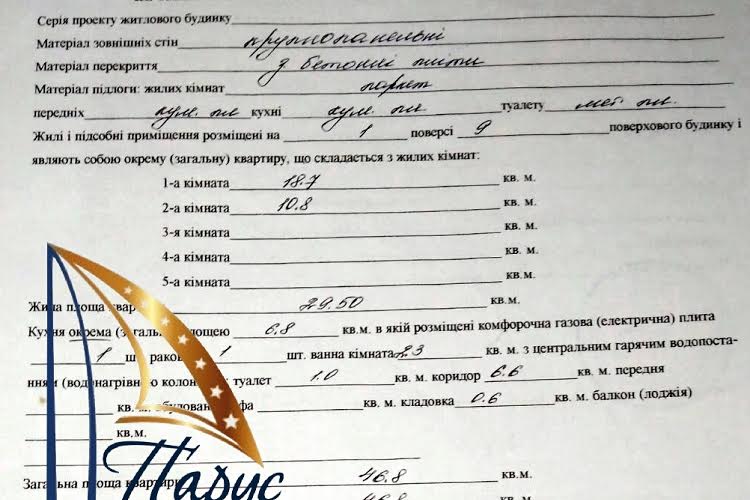 Серію проекту житлового будинку
Матеріал зовнішніх стін крупнопанельні
Матеріал перекриття з бетонні плити
Матеріал підлоги: жилих кімнат паркет
передніх кухні туалету мет. пл.
Жилі і підсобні приміщення розміщені на 1 поверсі 9 поверхового будинку і
являють собою окрему (загальну) квартиру, що складається з жилих кімнат:
1-а кімната 18.7 кв. м.
2-а кімната 10.8 кв. м.
3-я кімната кв. м.
4-а кімната кв. м.
5-а кімната кв.м.
Жила площа 29.50 кв.м.
Кухня окрема площею 6.8 кв.м. в якій розміщені комфорочна газова (електрична) плита
1 1 шт. ванна кімната 2.3 кв. м. з центральним гарячим водопоста-
нням туалет 1.0 кв. м. коридор 6.6 кв. м. передня
кв. м. кв. м. кладовка 0.6 кв. м. балкон (лоджія)
кв.м.
Загальна площа квартири 46.8 кв.м.
46.8 кв.м.
Парус